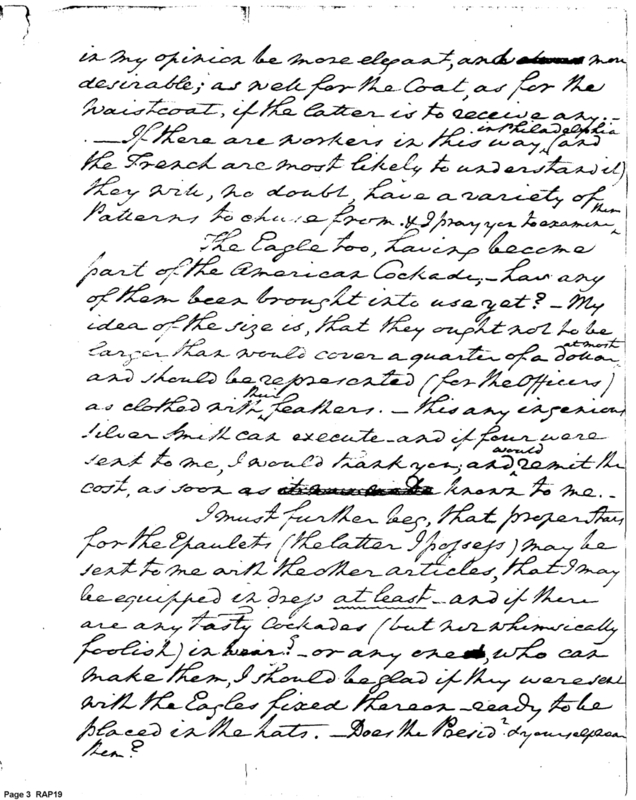 in my opinion be more elegant, and more
desirable; as well for the Coat, as for the
Waistcoat, if the latter is to receive any.-
- If there are workers in this way in Philadelphia (and
the French are most likely to understand it)
they will, no doubt, have a variety of
Patterns to chuse from. & I pray you to examine them
The Eagle too, having become
part of the American Cockade,- have any
of them been brought into use yet? - My
idea of the size is, that they ought not to be
larger than would cover a quarter of a dollar at most
and should be represented (for the Officers)
as clothed with their feathers. - this any ingenious
Silver Smith can execute - and if four were
sent to me, I would thank you, and would remit the
cost, as soon as known to me.-
I must further beg, that proper Stars
for the Epaulets (the latter I possess) may be
sent to me with the other articles, that I may
be equipped in dress at least - and if there
are any tasty Cockades (but not whimsically
foolish) in wear? - or any one, who can
make them, I should be glad if they were sent
with the Eagles fixed thereon - ready to be
placed in the hats. - Does the Presidt. & yourself wear
them?
Page 3 RAP19